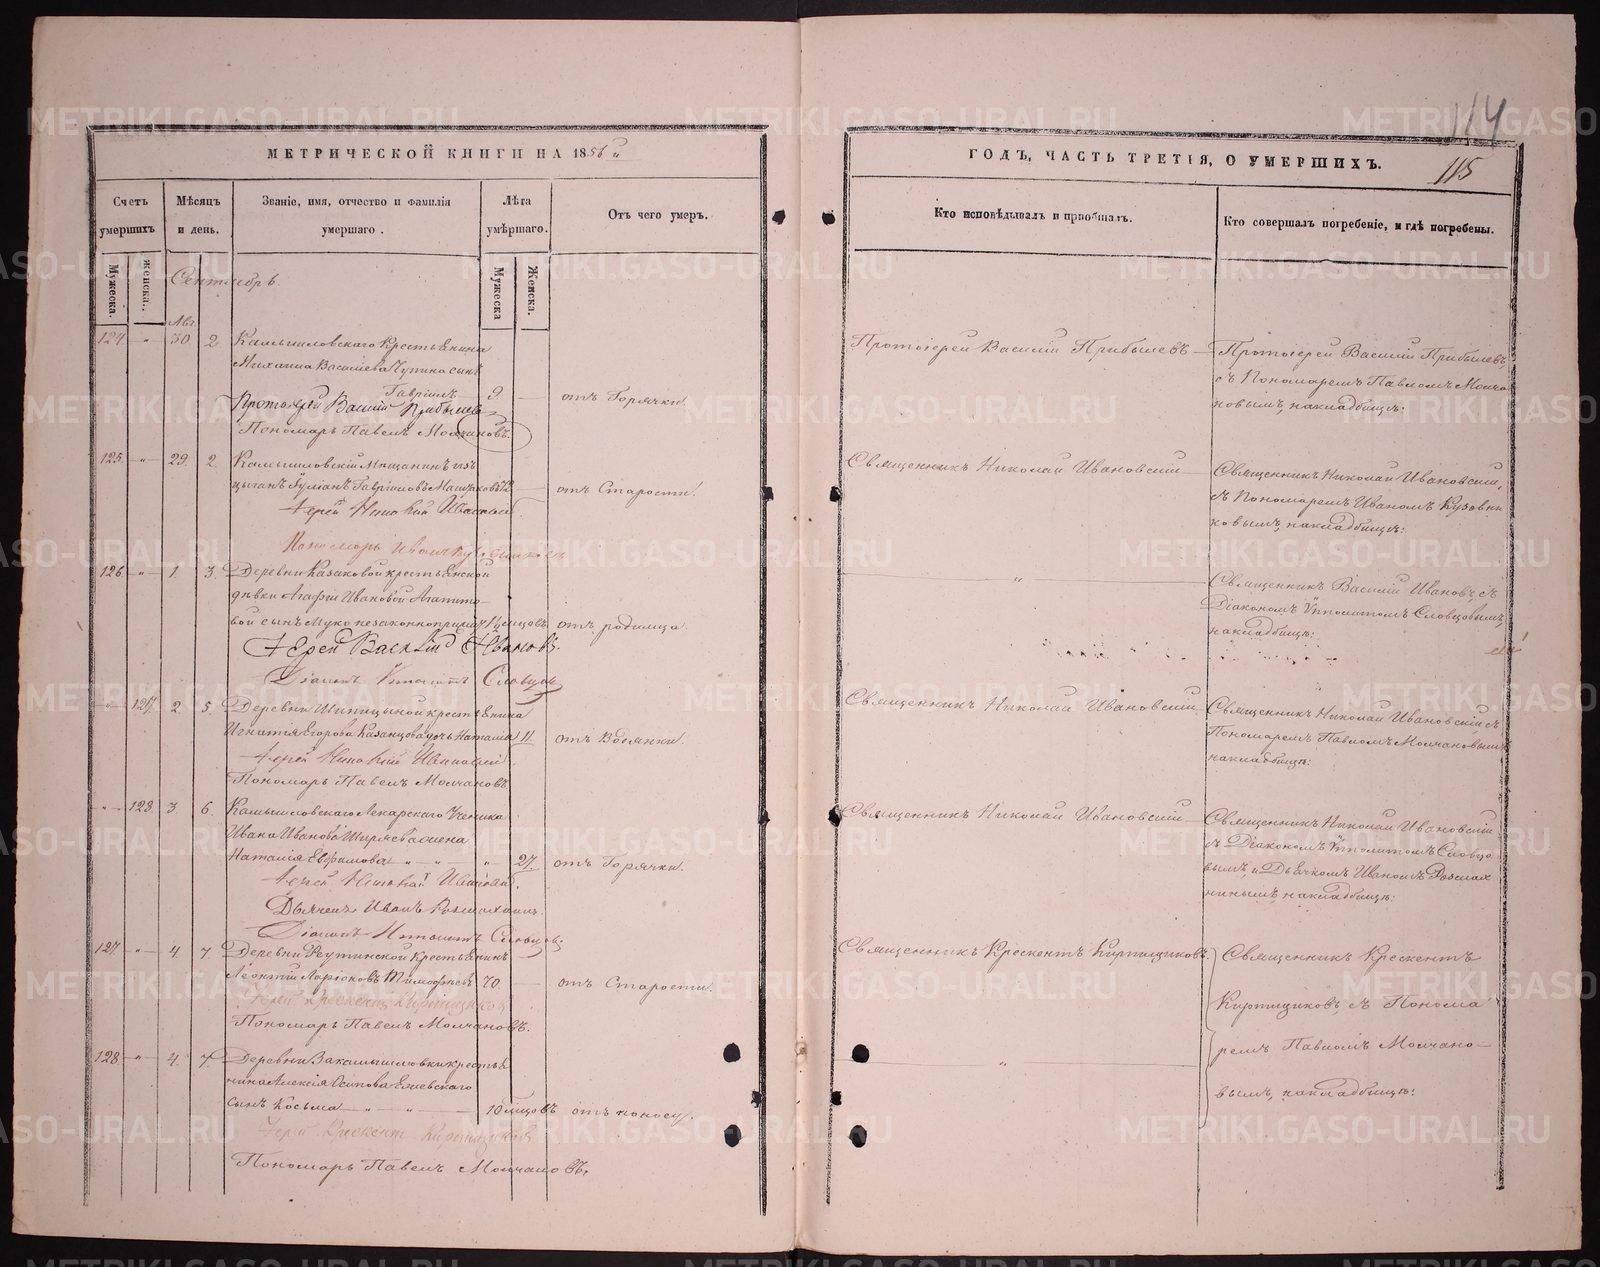 114
115
МЕТРИЧЕСКОЙ КНИГИ НА 1856 й
Счетъ умершихъ
Мѣсяцъ и день.
Званіе, имя, отчество и фамилія умершаго.
Лѣта умѣршаго.
Отъ чего умеръ.
Мужеска.
женска.
Мужеска
Женска.
Сентябрь.
Авг.
124 " 30 2 Камышловскаго Крестьянина
Михаила Васильева Чупина сынъ
Гавріилъ 9 — отъ Горячки.
Протоіерей Василій Прибылевъ
Пономарь Павелъ Молчановъ.
125. " 29. 2. Камышловскій Мѣщанинъ изъ
цыганъ Іуліанъ Гавріиловъ — отъ Старости.
Іерей Николай Ивановскій
Пономарь Иванъ
126 " 1. 3. Деревни Казаковой крестьянской
дѣвки Агафіи Ивановой
вой сынъ отъ родимца.
Іерей Василій Ивановъ.
Діаконъ Ипполитъ Словцовъ
" 127 2 5. Деревни Шипицыной крестьянина
Игнатія Егорова Казанцова дочь Наталія 11 отъ Водянки.
Іерей Николай Ивановскій
Пономарь Павелъ Молчановъ
" 128 3 6. Камышловскаго Лекарскаго Ученика
Ивана Иванова Ширяева жена
Наталія Евфимова " " " 27 отъ Горячки.
Іерей Николай Ивановскій.
Дьячекъ Иванъ
Діаконъ Ипполитъ Словцовъ
127 " 4 7. Деревни Реутинской Крестьянинъ
Леонтій Ларіоновъ Тимофѣевъ 70. — отъ Старости.
Іерей Крескентъ Кирпищиковъ
Пономарь Павелъ Молчановъ.
128 " 4. 7. Деревни Закамышловки крестья
нина Алексія Осипова
сынъ Косьма — " — " — 10 мѣсцовъ отъ поносу.
Іерей Крескентъ Кирпищиковъ
Пономарь Павелъ Молчановъ.
ГОДЪ, ЧАСТЬ ТРЕТІЯ, О УМЕРШИХЪ.
Кто исповѣдывалъ и пріобщалъ.
Кто совершалъ погребеніе, и гдѣ погребены.
Протоіерей Василій Прибылевъ
Протоіерей Василій Прибылевъ,
съ Пономаремъ Павломъ Молча
новымъ, на кладбищѣ:
Священникъ Николай Ивановскій
Священникъ Николай Ивановскій,
съ Пономаремъ Иваномъ
ковымъ, на кладбищѣ:
"
Священникъ Василій Ивановъ, съ
Діакономъ Ипполитомъ Словцовымъ,
на кладбищѣ:
Священникъ Николай Ивановскій
Священникъ Николай Ивановскій съ
Пономаремъ Павломъ Молчановымъ
на кладбищѣ:
Священникъ Николай Ивановскій
Священникъ Николай Ивановскій
съ Діакономъ Ипполитомъ Словцо
вымъ и Дьячкомъ Иваномъ
нинымъ, на кладбищѣ:
Священникъ Крескентъ Кирпищиковъ.
Священникъ Крескентъ
Кирпищиковъ, съ Понома
ремъ Павломъ Молчано-
вымъ, на кладбищѣ:
"
METRIKI.GASO-URAL.RU